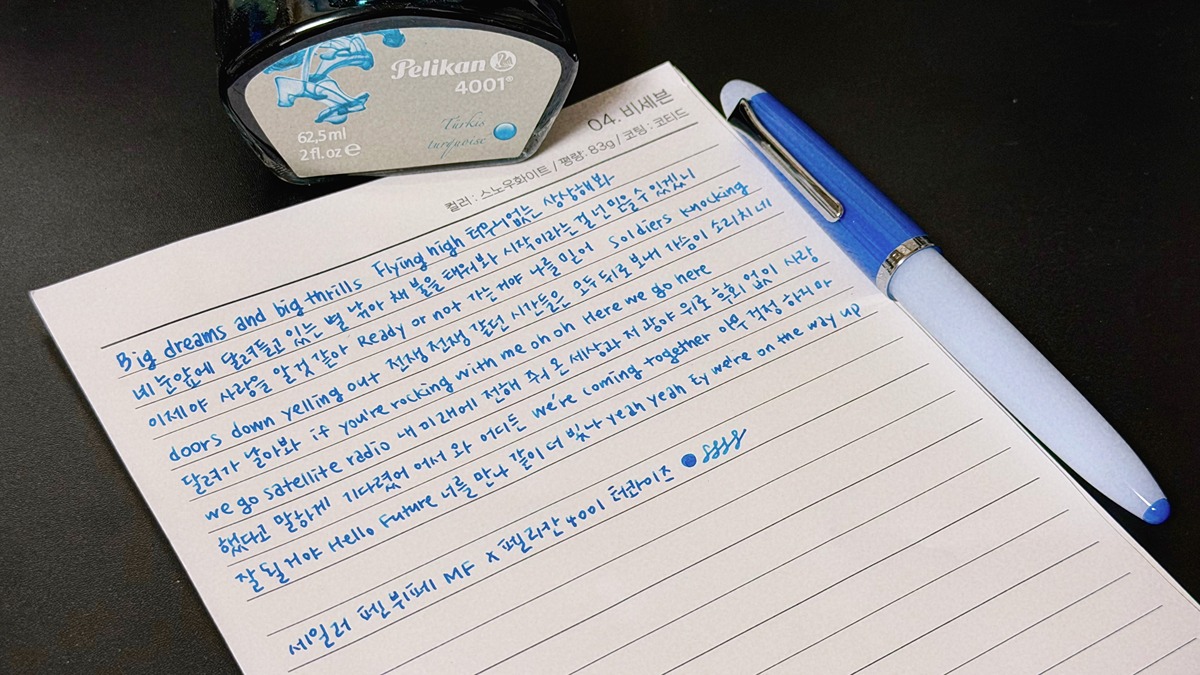 Pelikan
4001®
Türkis
turquoise
62,5 ml
2 fl. oz e
04. 비세븐
컬러 : 스노우화이트 / 평량: 83g / 코팅 : 코티드
Big dreams and big thrills Flying high 터무니없는 상상해봐
네 눈앞에 달려들고 있는 별 낚아 채 불을 태워봐 시작이라는 걸 넌 믿을 수 있겠니
이제야 사랑을 알 것 같아 Ready or not 가는거야 나를 믿어 Soldiers knocking
doors down yelling out 전쟁 전쟁 같던 시간들은 모두 뒤로 보내 가슴이 소리치네
달려가 날아봐 if you're rocking with me oh oh Here we go here
we go satellite radio 내 미래에 전해 줘 온 세상과 저 광야 위로 후회 없이 사랑
했다고 말하게 기다렸어 어서 와 어디든 we're coming together 아무 걱정 하지마
잘 될거야 Hello Future 너를 만나 같이 더 빛나 yeah yeah Ey we're on the way up
세일러 펜 뷔페 MF x 펠리칸 4001 터콰이즈